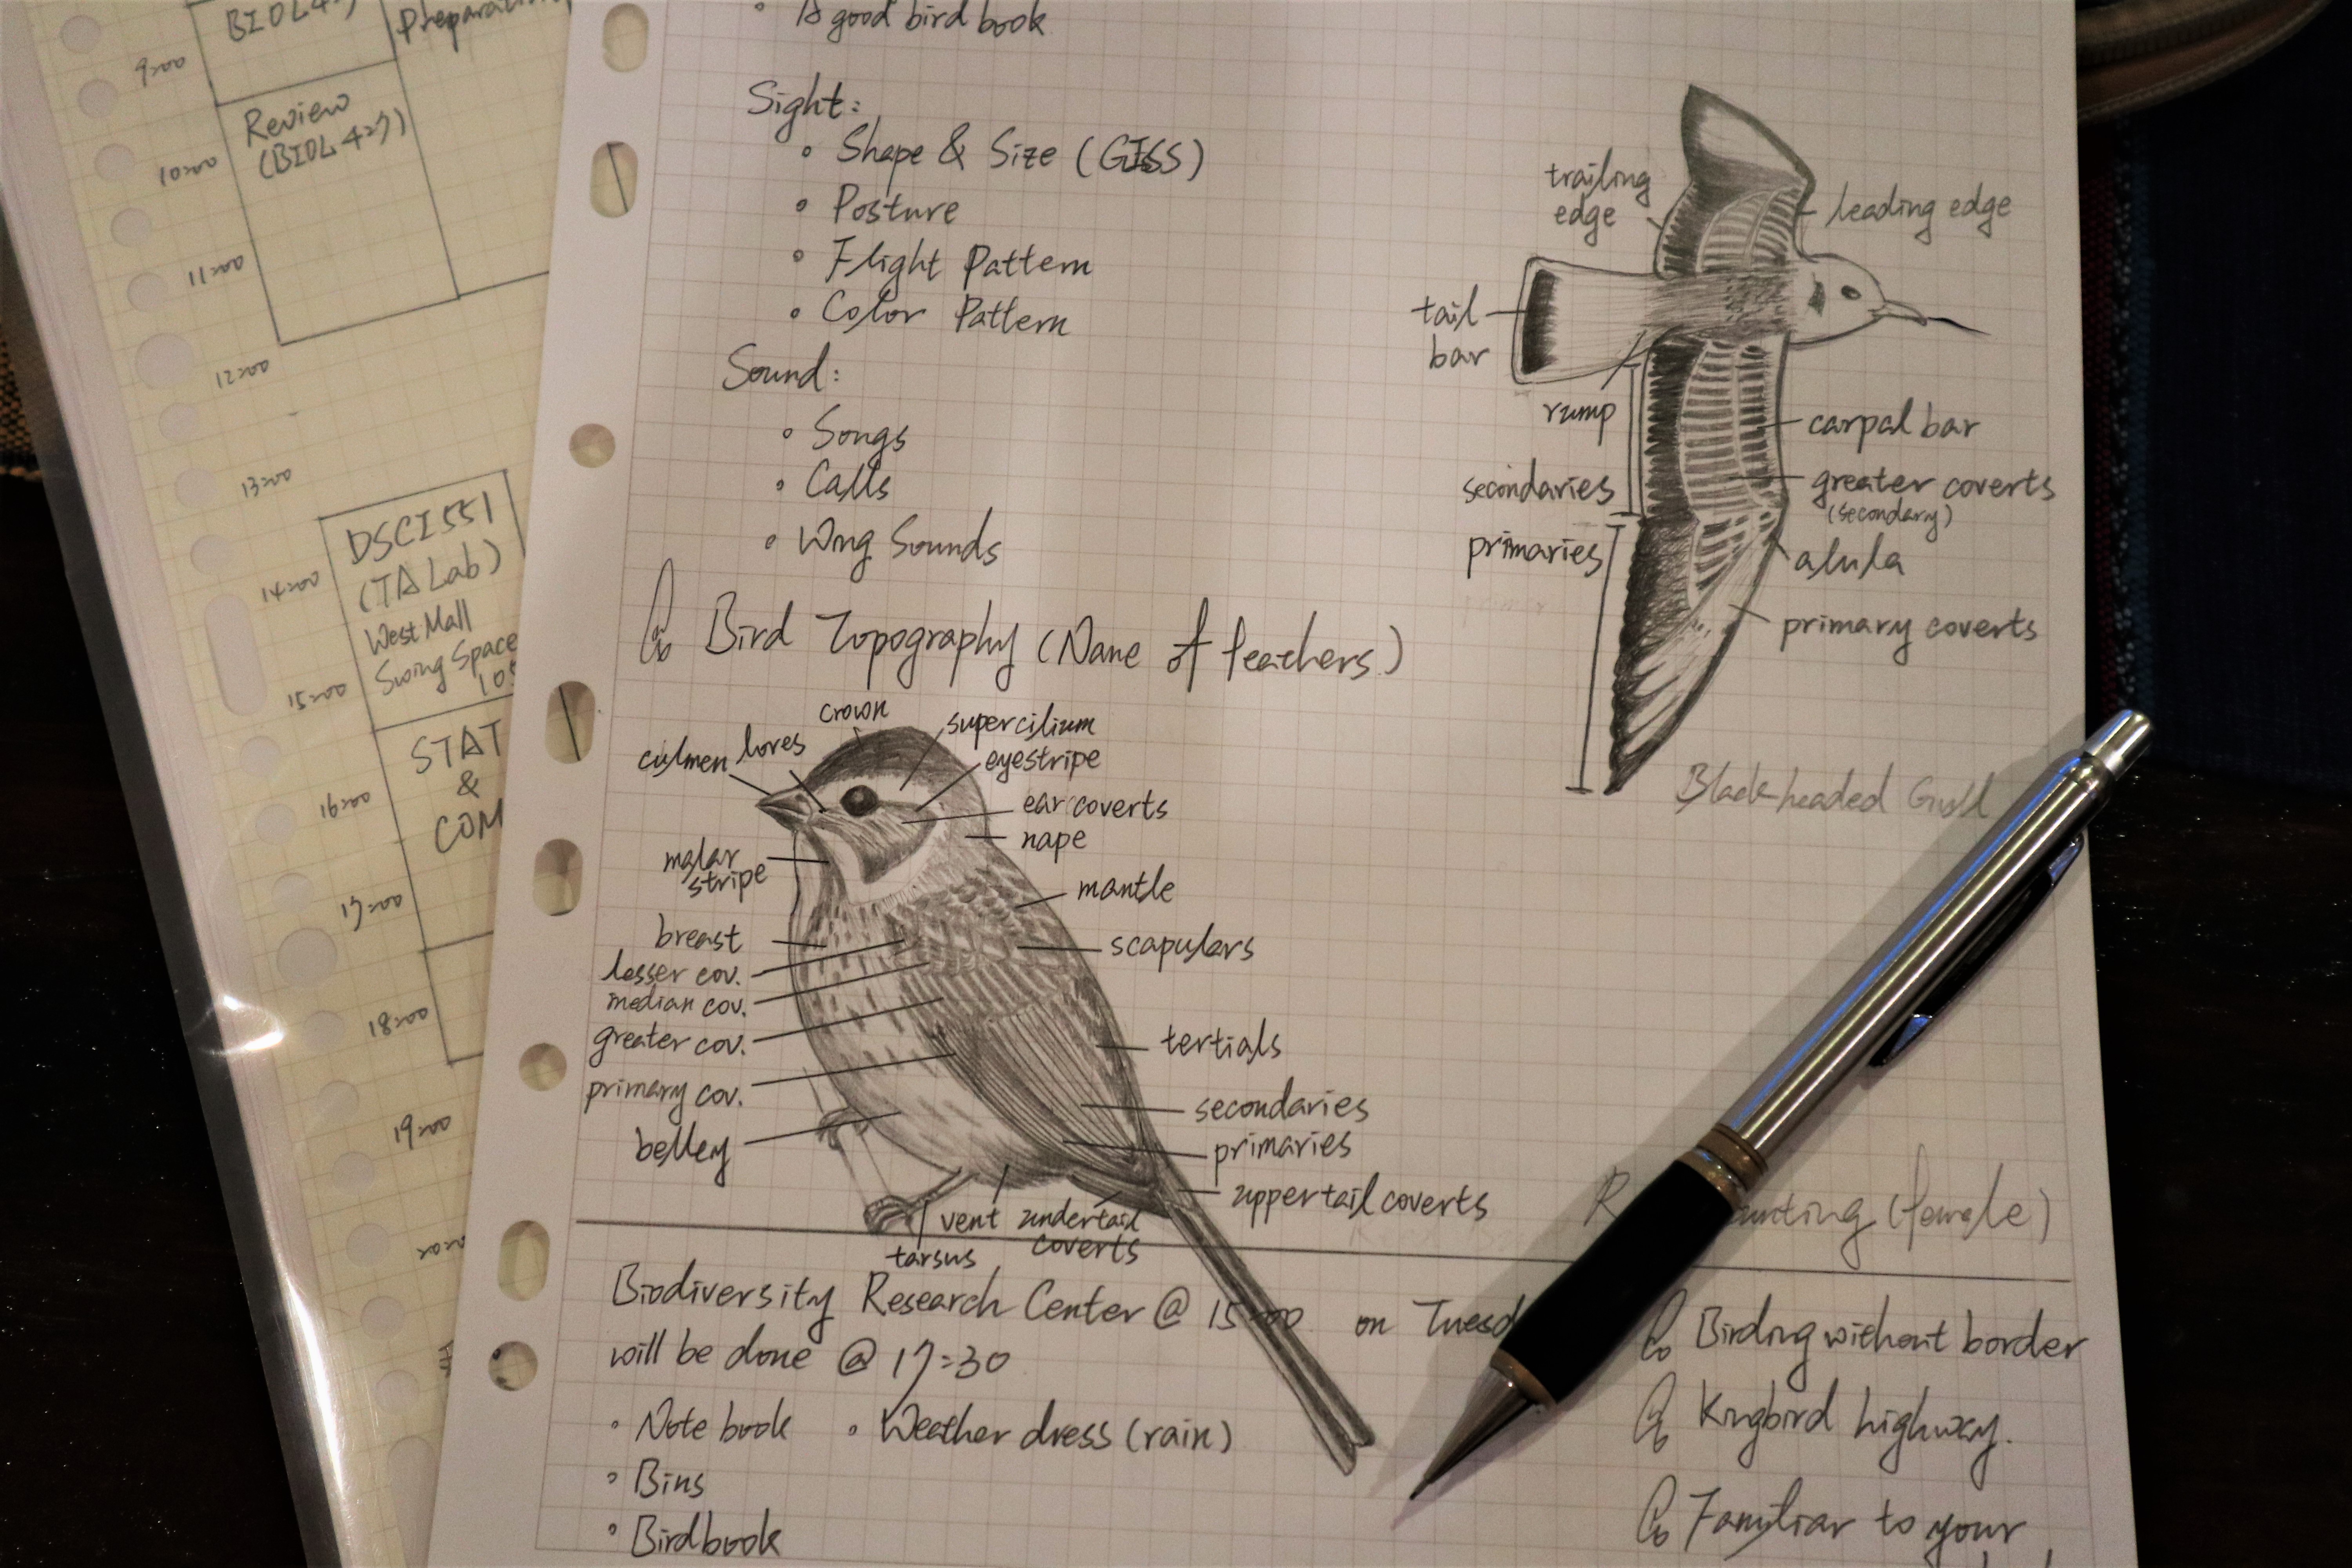 BIOL 427
Preparation
9:00
Review
(BIOL 427)
10:00
11:00
12:00
13:00
DSCI 551
(TA Lab)
West Mall
Swing Space
14:00
15:00
STAT
&
COM
16:00
17:00
18:00
19:00
A good bird book
Sight:
• Shape & Size (GISS)
• Posture
• Flight Pattern
• Color Pattern
Sound:
• Songs
• Calls
• Wing Sounds
trailing
edge
leading edge
tail
bar
rump
carpal bar
secondaries
greater coverts
(secondary)
primaries
alula
primary coverts
Black-headed Gull
Bird Topography (Name of feathers)
crown
supercilium
culmen
lores
eyestripe
ear coverts
nape
malar
stripe
mantle
breast
scapulars
lesser cov.
median cov.
greater cov.
tertials
primary cov.
secondaries
belley
primaries
uppertail coverts
vent
undertail
coverts
tarsus
unting (female)
Biodiversity Research Center @ 15:00 on Tuesd
will be done @ 17:30
• Note book
• Weather dress (rain)
• Bins
• Birdbook
Birding without border
Kingbird highway.
Familiar to your